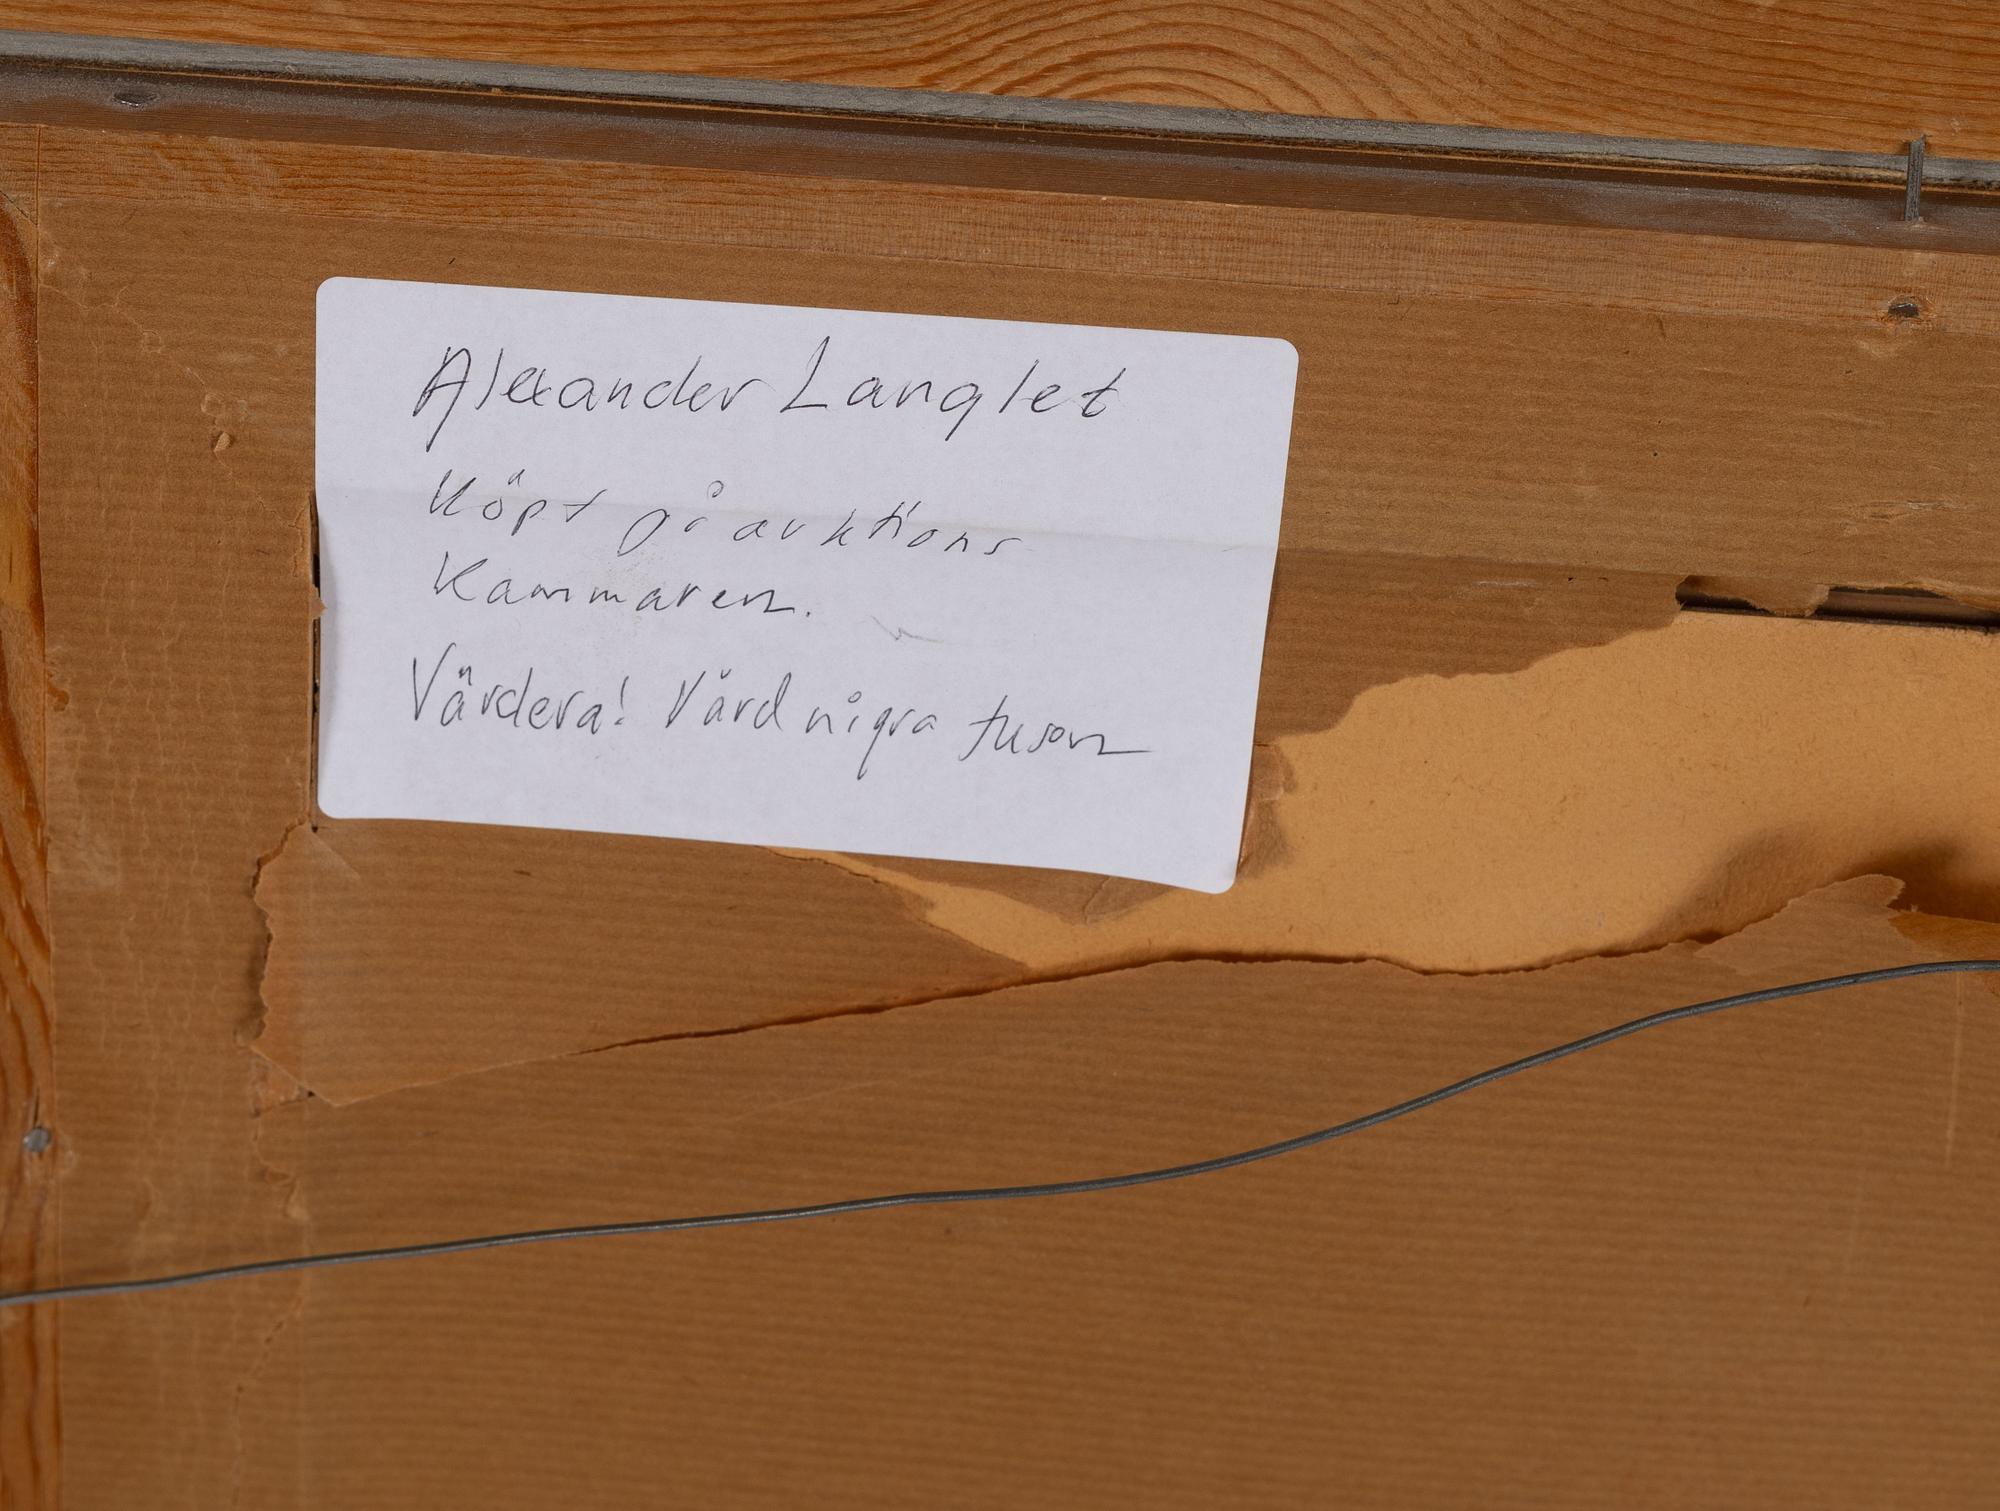 Alexander Langlet
Köpt på auktions
Kammaren.
Värdera! Värd några tusen